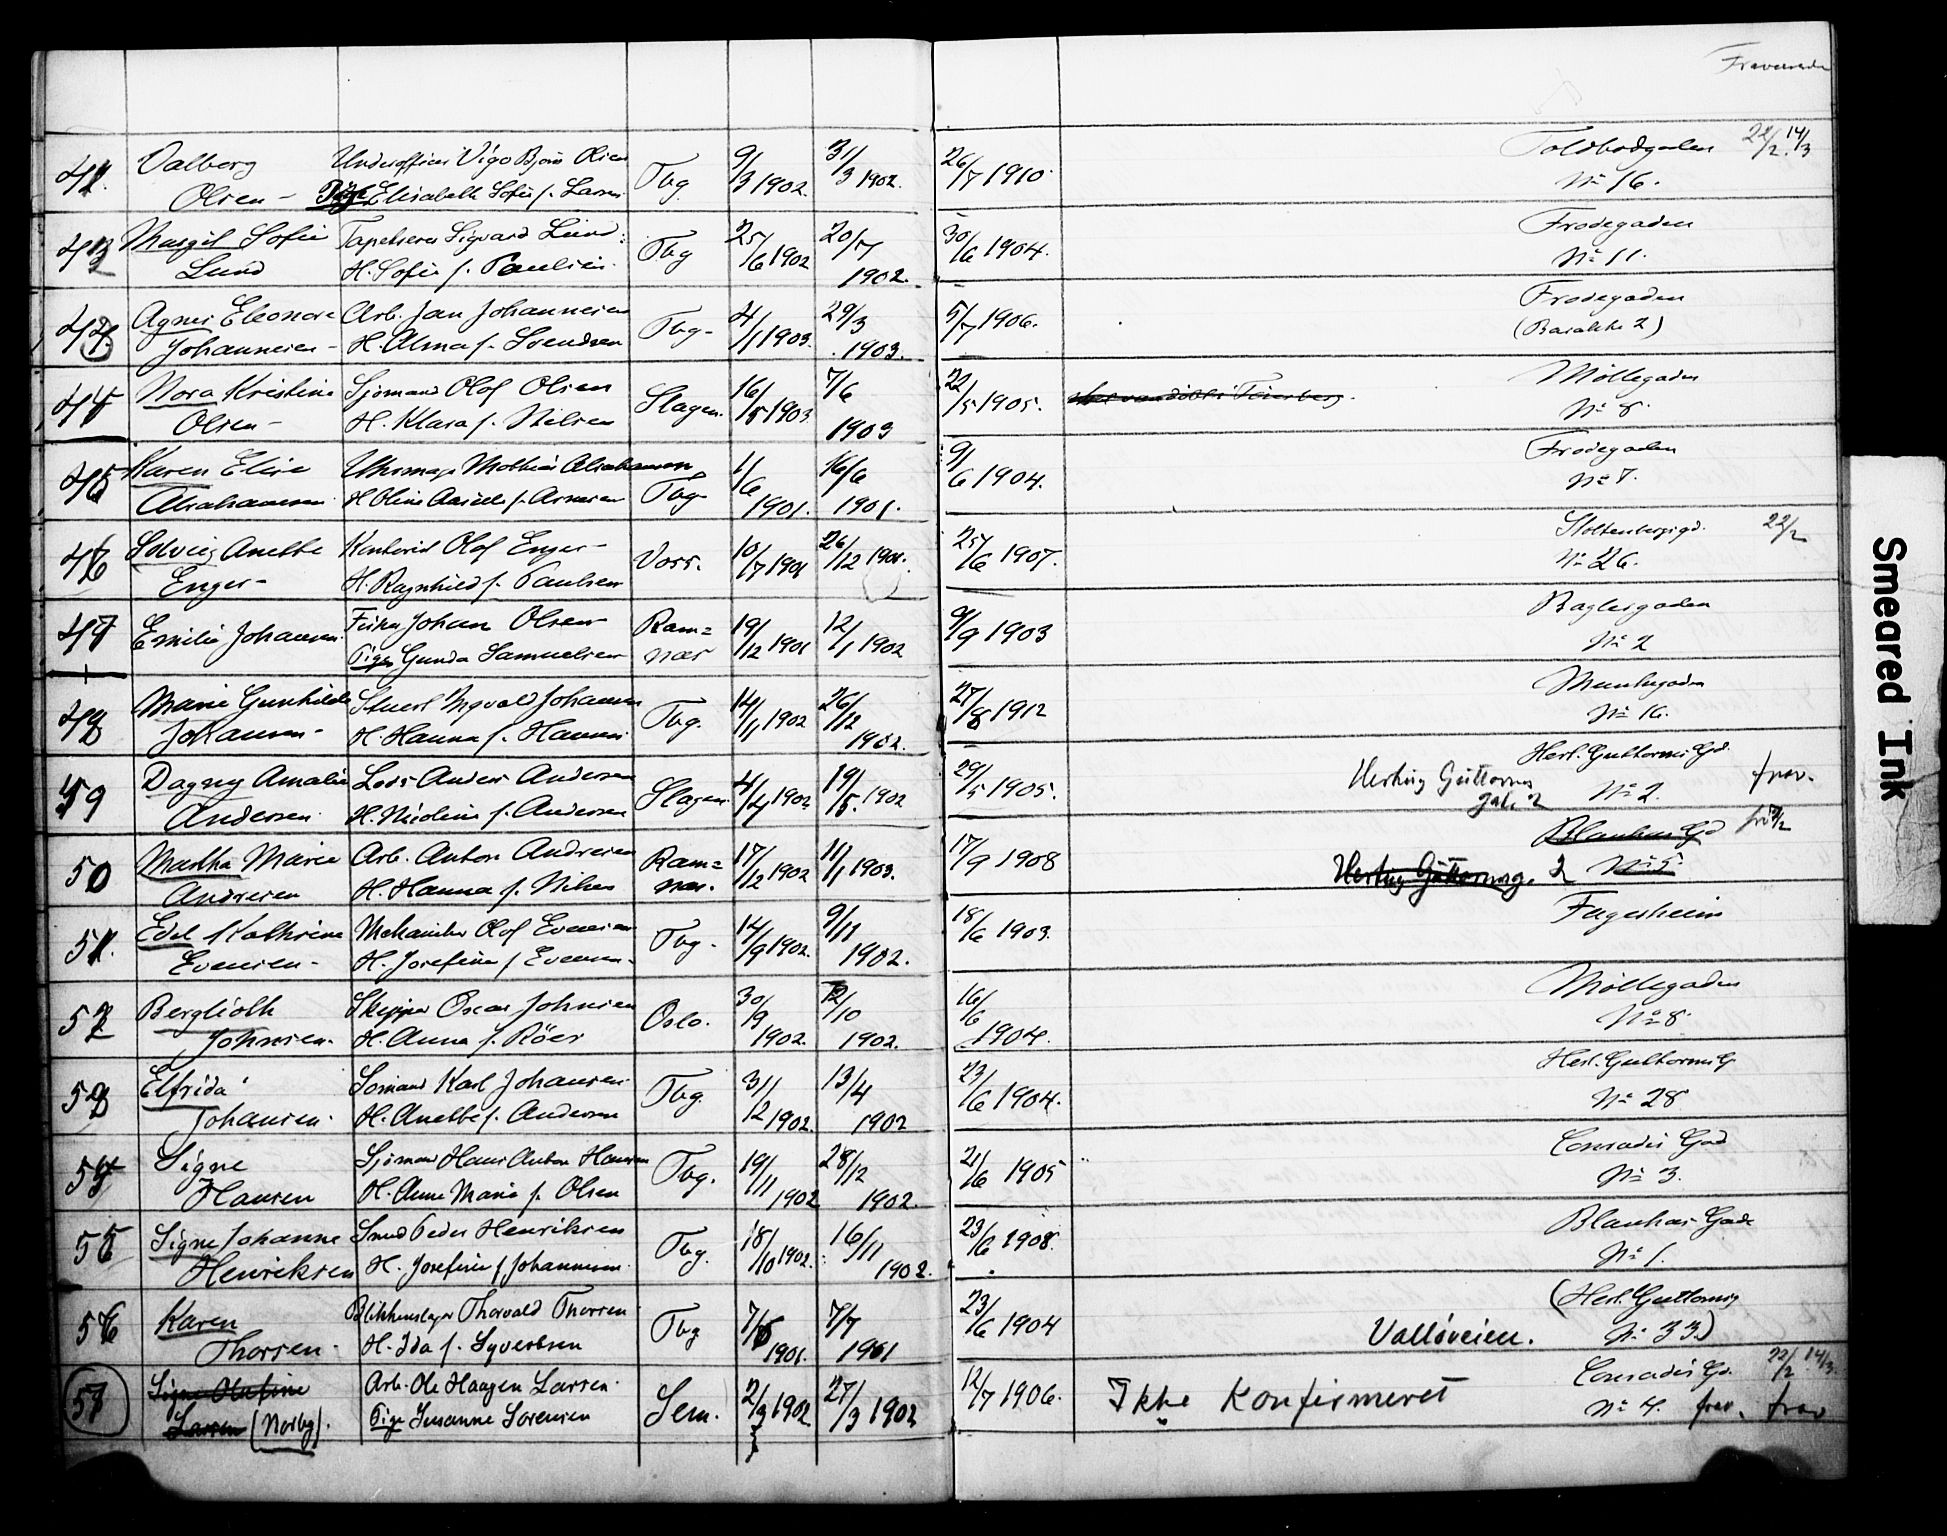 Fraværende
41. Valborg Underofficer Vigo Bjørn Olsen Tbg 9/3 1902 31/3 1902. 26/7 1910. Toldbodgaden 22/2. 14/3
Olsen - Pige Elisabeth Sofie f. Larsen No 16.
42 Margit Sofie Tapetserer Sigvard Lund Tbg 25/6 1902 20/7 30/6 1904. Frodegaden
Lund H. Sofie f. Paulsen. 1902. No 11.
43 Agnes Eleonore Arb. Jan Johannesen Tbg - 4/1 1903. 29/3 5/7 1906. Frodegaden
Johannesen - H. Alma f. Svendsen 1903. (Barakke 2)
44 Nora Kristine Sjømand Olof Olsen Slagen. 16/5 1903 7/6 22/5 1905. Møllegaden
Olsen - H. Klara f. Nielsen 1903 No 8.
45 Karen Elise Uhrmager Mathias Abrahamsen Tbg 1/6 16/6 9/6 1904. Frodegaden
Abrahamsen H. Oline f. Arnesen 1901. 1901. No 7.
46 Solveig Anette Kontorist Olof Enger - Vors. 10/7 1901 26/12 1901. 25/6 1907. Stoltenbergsgd. 22/2
Enger - H. Ragnhild f. Paulsen No 26.
47 Emilie Johansen. Fisker Johan Olsen Ram= 19/12 1901 12/1 1902 9/9 1903 Baglergaden
Pige Gunda Samuelsen næs No 2
48 Marie Gunhilde Stuert Ingvald Johansen Tbg. 14/1 1902 26/12 27/8 1912 Munkegaden
Johansen - H. Hanna f. Hansen 1902. No 16.
49 Dagny Amalie Lods Anders Andersen Slagen. 4/4 1902 19/5. 1902 29/5 1905. Hertug Guttorms gat. 2 Hert. Guttorms Gd. frav.
Andersen. H. Nicoline f. Andersen No 2.
50 Martha Marie Arb. Anton Andresen Ram= 17/12 1902 11/1 1903. 17/9 1908 Blanhus Gd
Andresen H. Hanna f. Nilsen næs. Hertug Guttormsg. 2 No 5
51. Edel Kathrine Mekaniker Olof Evensen Tbg - 14/9 1902. 9/11 18/6 1903. Fagerheim
Evensen - H. Josefine f. Evensen - 1902.
52 Berglioth Skipper Oscar Johnsen Oslo. 30/9 12/10 16/6 Møllegaden
Johnsen. H. Anna f. Röer 1902. 1902. 1904. No 8.
53 Elfrida Sømand Karl Johansen Tbg. 31/12 13/4 23/6 1904. Hert. Guttorms G.
Johansen. H. Anette f. Andersen 1902. 1902 No 28
54 Signe Sjømand Hans Anton Hansen Tbg. 19/11 28/12 21/6 1905 Conradis Gad
Hansen H. Anne Marie f. Olsen 1902 1902. No 3.
55 Signe Johanne Smed Peder Henriksen Tbg. 18/10 1902. 16/11 23/6 1908. Blanhas Gade
Henriksen H. Josefine f. Johannesen. 1902. No 1.
56 Karen Blikkenslager Thorvald Thorsen Tbg 7/5 7/7 23/6 1904 (Hert. Guttormsg
Thorsen - H. Ida f. Syvertsen 1901. 1901 Valløveien. No 33.)
57 Signe Olufine Arb. Ole Haagen Larsen Sem. 2/3 1902 27/3 1902 12/7 1906. Ikke Konfirmeret Conradis Gd. 22/2 14/3.
Larsen (Norby). Pige Susanne Sørensen No 4. frav. frav
Smeared Ink